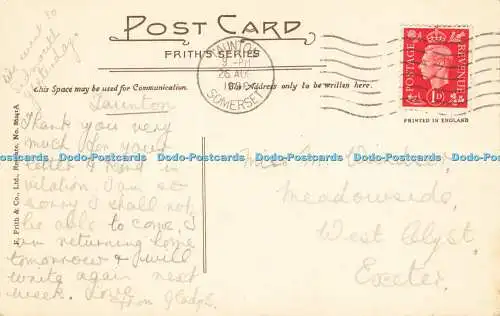 POST CARD
FRITH'S SERIES
This Space may be used for Communication.
The Address only to be written here.
TAUNTON
PM
26 AUG
SOMERSET
POSTAGE
REVENUE
1D
PRINTED IN ENGLAND
F. Frith & Co., Ltd., Reigate. No.
Taunton
Thank you very
much for your
letter & kind in
vitation. I am so
sorry I shall not
be able to come, I
am returning home
tomorrow & will
write again next
week. Love
from Gladys.
Miss M.
Meadowside,
West Clyst,
Exeter.
Dodo-Postcards Dodo-Postcards Dodo-Postcards Dodo-Postcards Dodo-Postcards